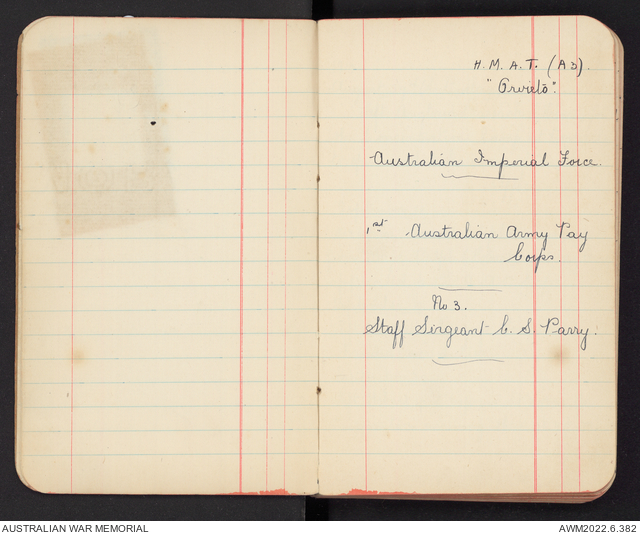 H. M. A. T. (A3).
"Orvieto".
Australian Imperial Force.
1st Australian Army Pay
Corps.
No 3.
Staff Sergeant C. S. Parry.
AUSTRALIAN WAR MEMORIAL
AWM2022.6.382